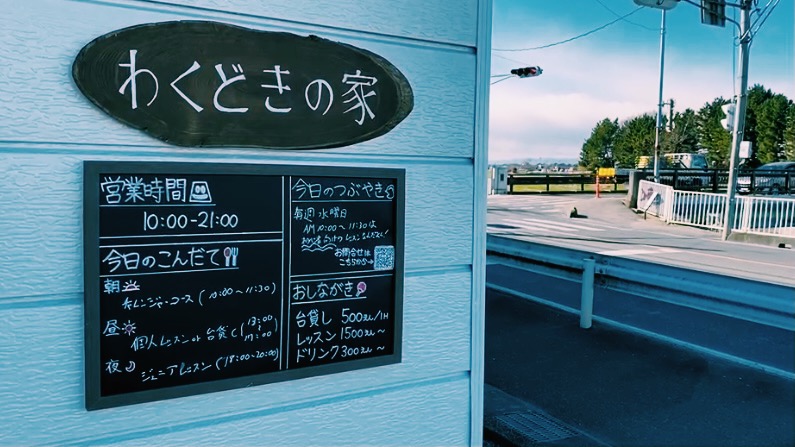 わくどきの家
営業時間
10:00-21:00
今日のこんだて
朝
チャレンジ・コース (10:00~11:30)
昼
個人レッスン or 台貸し (13:00~17:00)
夜
ジュニアレッスン (18:00-20:00)
今日のつぶやき
毎週 水曜日
AM 10:00~11:30は
初心者向けのレッスンなんだよん!
お問合せは
こちらから→
おしながき
台貸し 500えん/1H
レッスン 1500えん~
ドリンク 300えん~